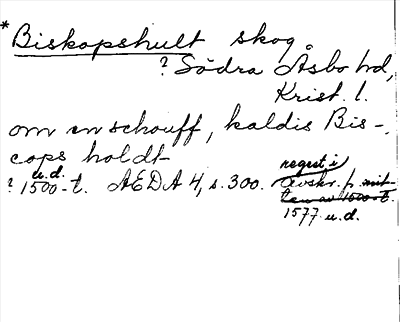 * Biskopshult skog.
? Södra Åsbo hd,
Krist. l.
om en schouff, kaldis Bis-
cops holdt
u.d.
? 1500-t. AEDA 4, s. 300.
regest i
avskr. fr mit-
ten av 1600-t.
1577 u.d.